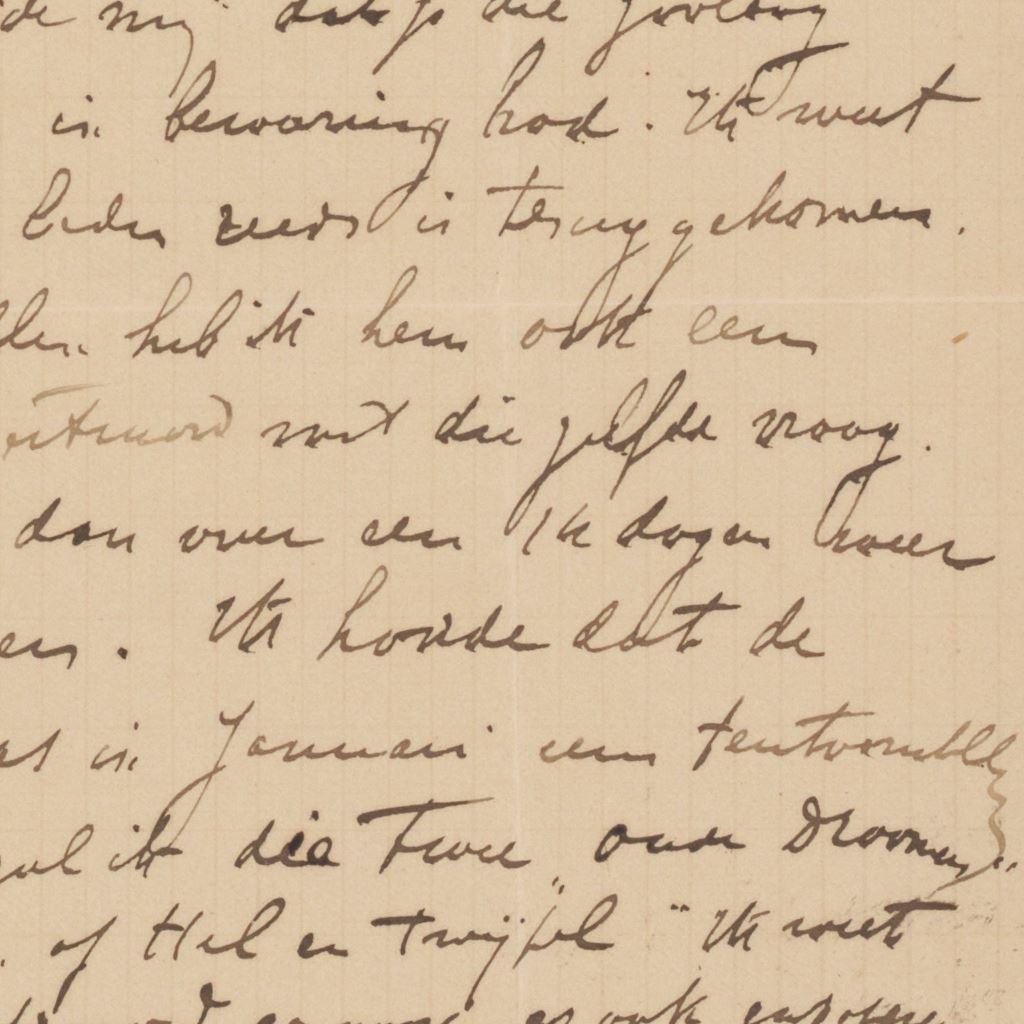 de mij dat je die
in bewaring had. Ik weet
Leden reeds is teruggekomen.
den heb ik hem ook een
met die zelfde vraag.
dan over een 14 dagen weer
en. Ik hoorde dat de
in Januari een tentoonstell
zal ik die twee oude Droomen"
of Hel en twijfel" Ik weet
ook